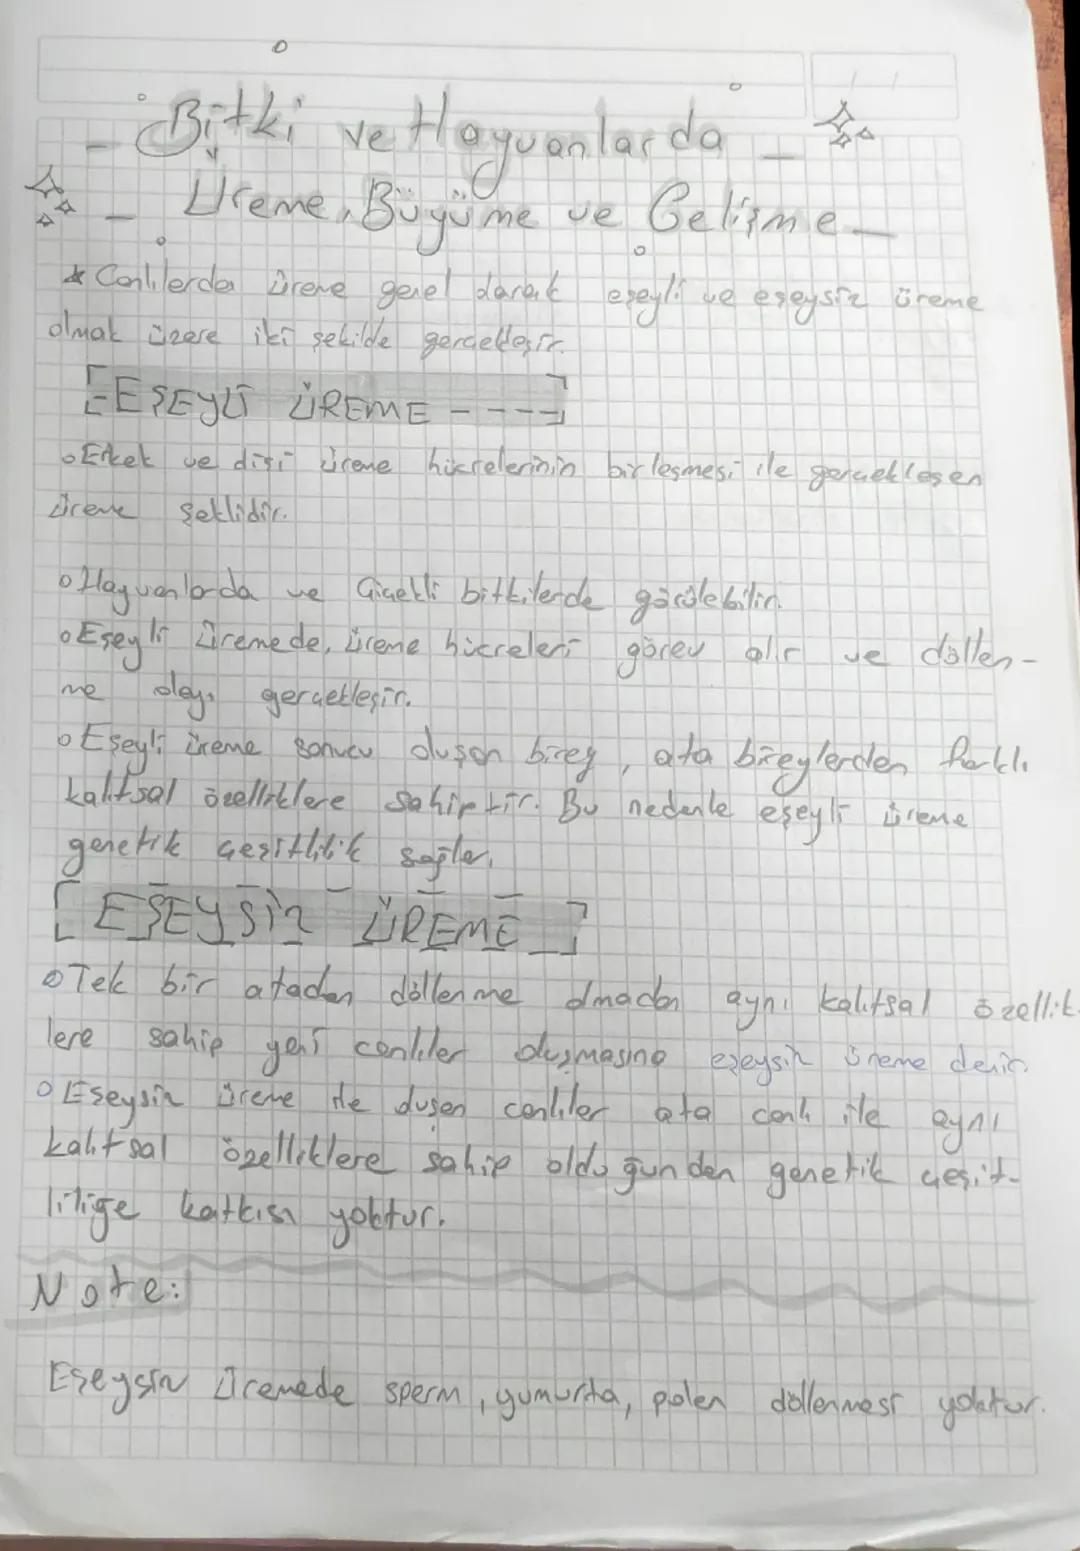 Bitki ve Hayvanlarda
Üreme, Büyüme ve Gelişme
* Canlılarda üreme genel olarak eşeyli ve eşeysiz üreme
olmak üzere iki şekilde gerçekleşir.
[-EŞEYLİ ÜREME ----]
o Erkek ve dişi üreme hücrelerinin birleşmesi ile gerçekleşen
üreme şeklidir.
o Hayvanlarda ve Çiçekli bitkilerde görülebilir.
o Eşeyli üremede, üreme hücreleri görev alır ve döllen-
me olayı gerçekleşir.
o Eşeyli üreme sonucu oluşan birey, ata bireylerden farklı
kalıtsal özelliklere sahiptir. Bu nedenle eşeyli üreme
genetik çeşitlilik sağlar.
[EŞEYSİZ ÜREME]
o Tek bir atadan döllenme olmadan aynı kalıtsal özellik-
lere sahip yeni canlılar oluşmasına eşeysiz üreme denir.
o Eşeysiz üreme ile oluşan canlılar ata canlı ile aynı
kalıtsal özelliklere sahip olduğundan genetik çeşit-
liliğe katkısı yoktur.
Note:
Eşeysiz üremede sperm, yumurta, polen döllenmesi yoktur.